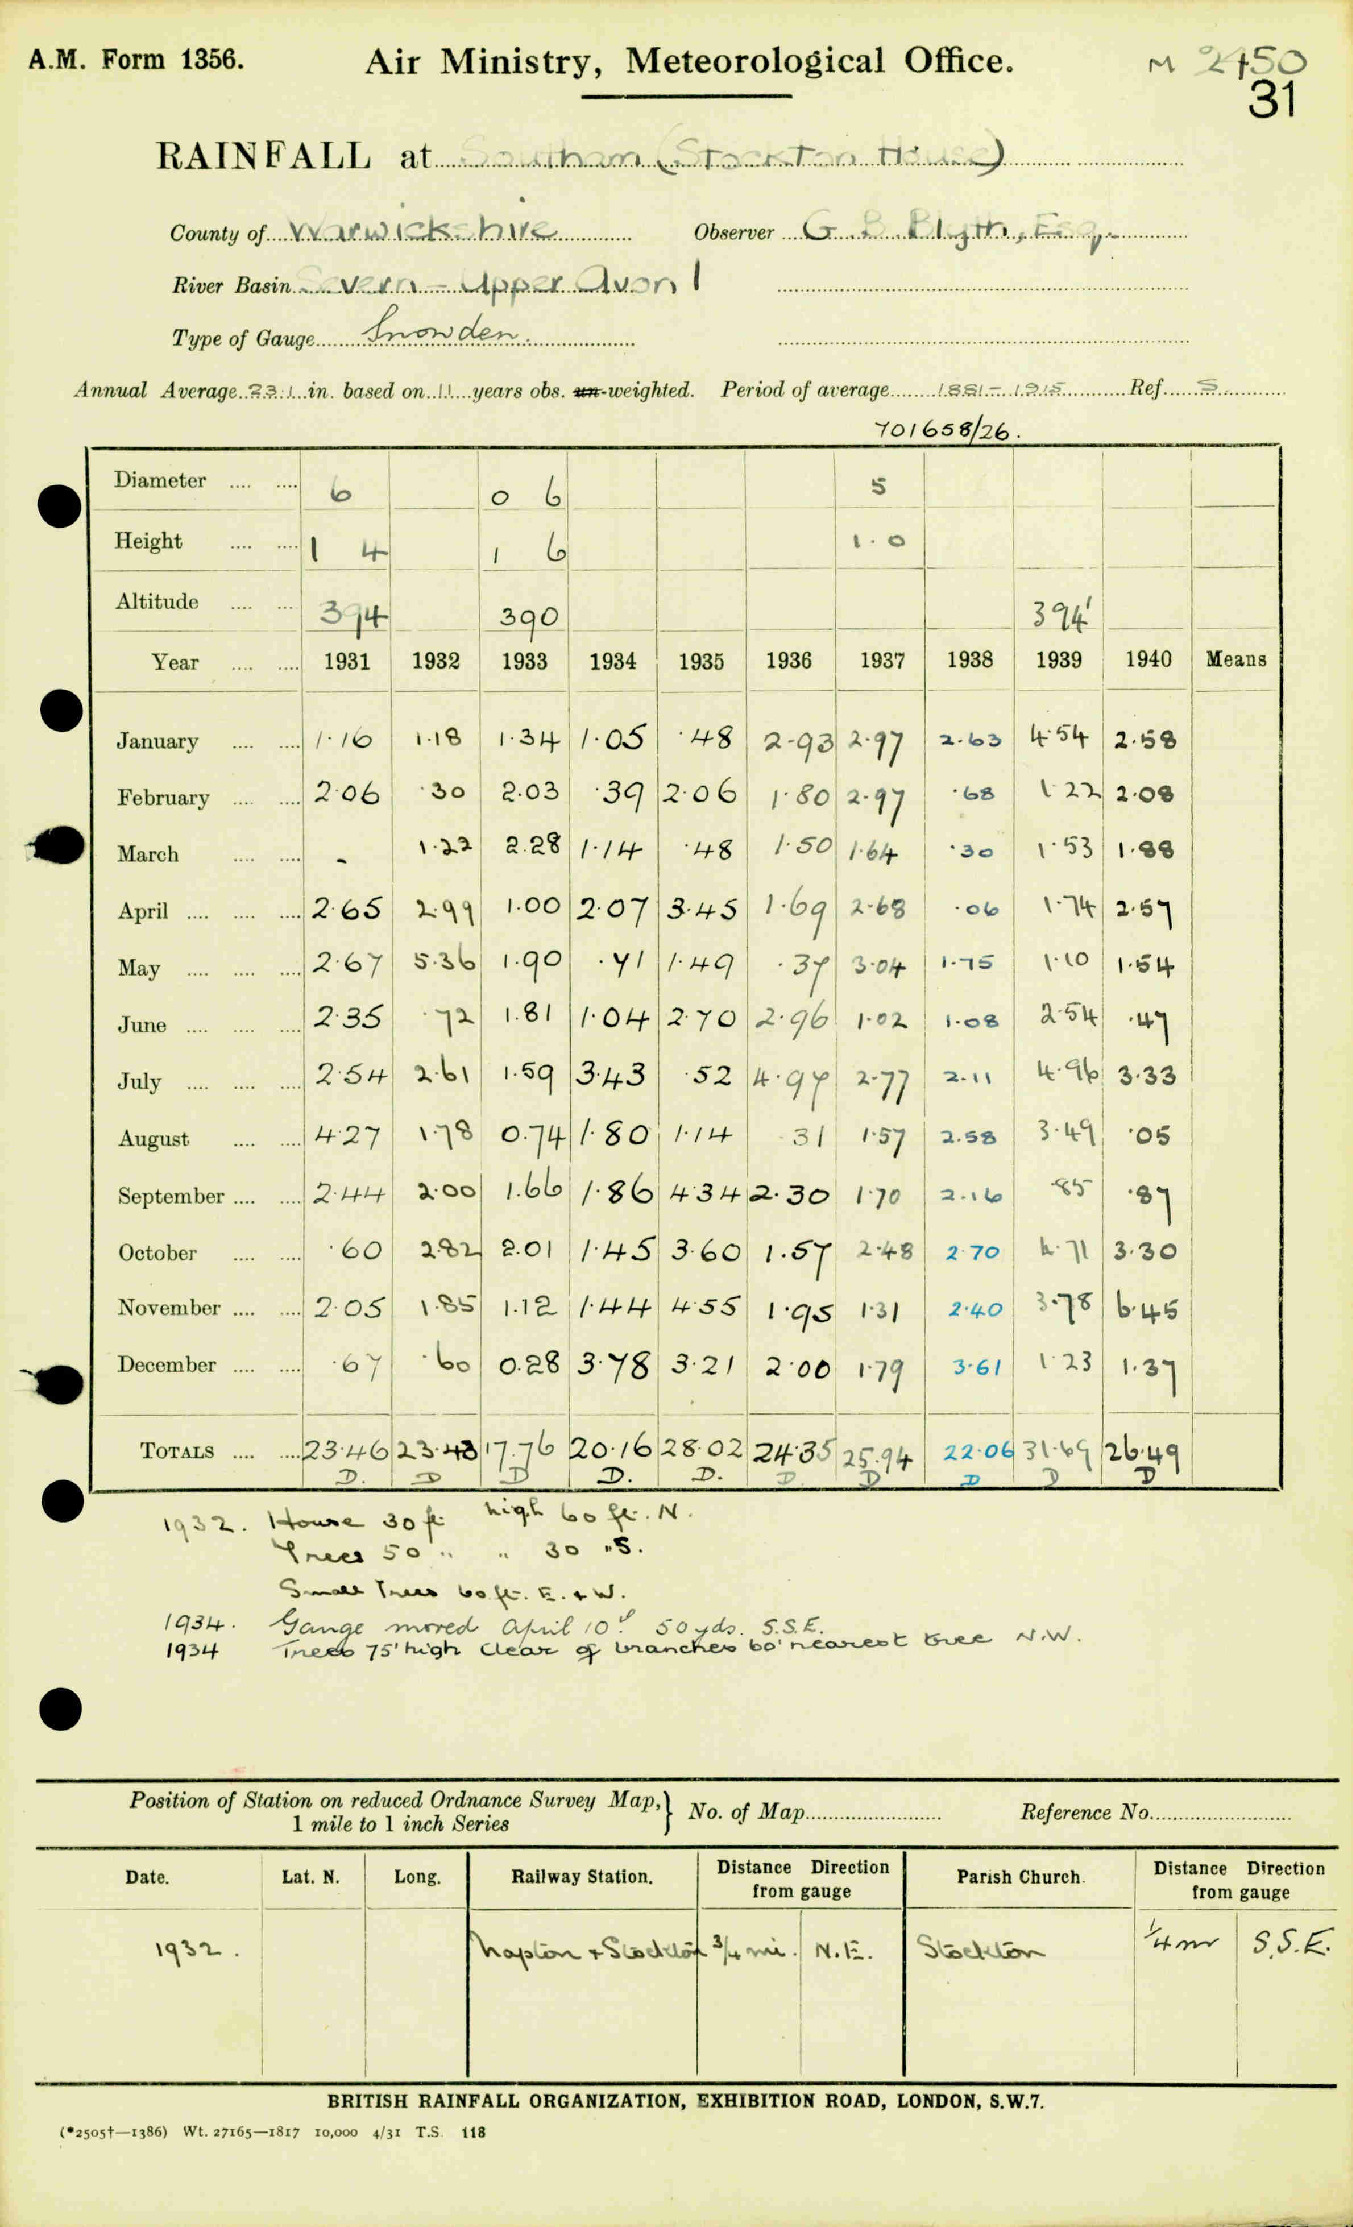 A.M. Form 1356. Air Ministry, Meteorological Office. M 2450
31
RAINFALL at Southam (Stockton House)
County of Warwickshire Observer G. B. Blyth, Esq.
River Basin Severn - Upper Avon 1
Type of Gauge Snowden.
Annual Average 23.1 in. based on 11 years obs. un-weighted. Period of average 1881-1915 Ref. S.
701658/26.
Diameter .... .... 6 0 6 5
Height .... .... 1 4 1 6 1.0
Altitude .... .... 394 390 394'
Year .... .... 1931 1932 1933 1934 1935 1936 1937 1938 1939 1940 Means
January .... .... 1.16 1.18 1.34 1.05 .48 2.93 2.97 2.63 4.54 2.58
February .... .... 2.06 .30 2.03 .39 2.06 1.80 2.97 .68 1.22 2.08
March .... .... - 1.22 2.28 1.14 .48 1.50 1.64 .30 1.53 1.88
April .... .... .... 2.65 2.99 1.00 2.07 3.45 1.69 2.68 .06 1.74 2.57
May .... .... .... 2.67 5.36 1.90 .71 1.49 .37 3.04 1.75 1.10 1.54
June .... .... .... 2.35 .72 1.81 1.04 2.70 2.96 1.02 1.08 2.54 .47
July .... .... .... 2.54 2.61 1.59 3.43 .52 4.97 2.77 2.11 4.96 3.33
August .... .... 4.27 1.78 0.74 1.80 1.14 .31 1.57 2.58 3.49 .05
September .... .... 2.44 2.00 1.66 1.86 4.34 2.30 1.70 2.16 .85 .87
October .... .... .60 2.82 2.01 1.45 3.60 1.57 2.48 2.70 4.71 3.30
November .... .... 2.05 1.85 1.12 1.44 4.55 1.95 1.31 2.40 3.78 6.45
December .... .... .67 .60 0.28 3.78 3.21 2.00 1.79 3.61 1.23 1.37
TOTALS .... .... 23.46 23.43 17.76 20.16 28.02 24.35 25.94 22.06 31.69 26.49
D. D D D. D. D. D D D D
1932. House 30 ft high 60 ft. N.
Trees 50 " " 30 " S.
Small Trees 60 ft. E. & W.
1934. Gauge moved April 10th 50 yds. S.S.E.
1934 Trees 75' high clear of branches 60' nearest tree N.W.
Position of Station on reduced Ordnance Survey Map, } No. of Map Reference No.
1 mile to 1 inch Series
Date. Lat. N. Long. Railway Station. Distance Direction from gauge Parish Church. Distance Direction from gauge
1932. Napton & Stockton 3/4 mi. N.E. Stockton 1/4 mi S.S.E.
BRITISH RAINFALL ORGANIZATION, EXHIBITION ROAD, LONDON, S.W.7.
(*2505†—1386) Wt. 27165—1817 10,000 4/31 T.S. 118